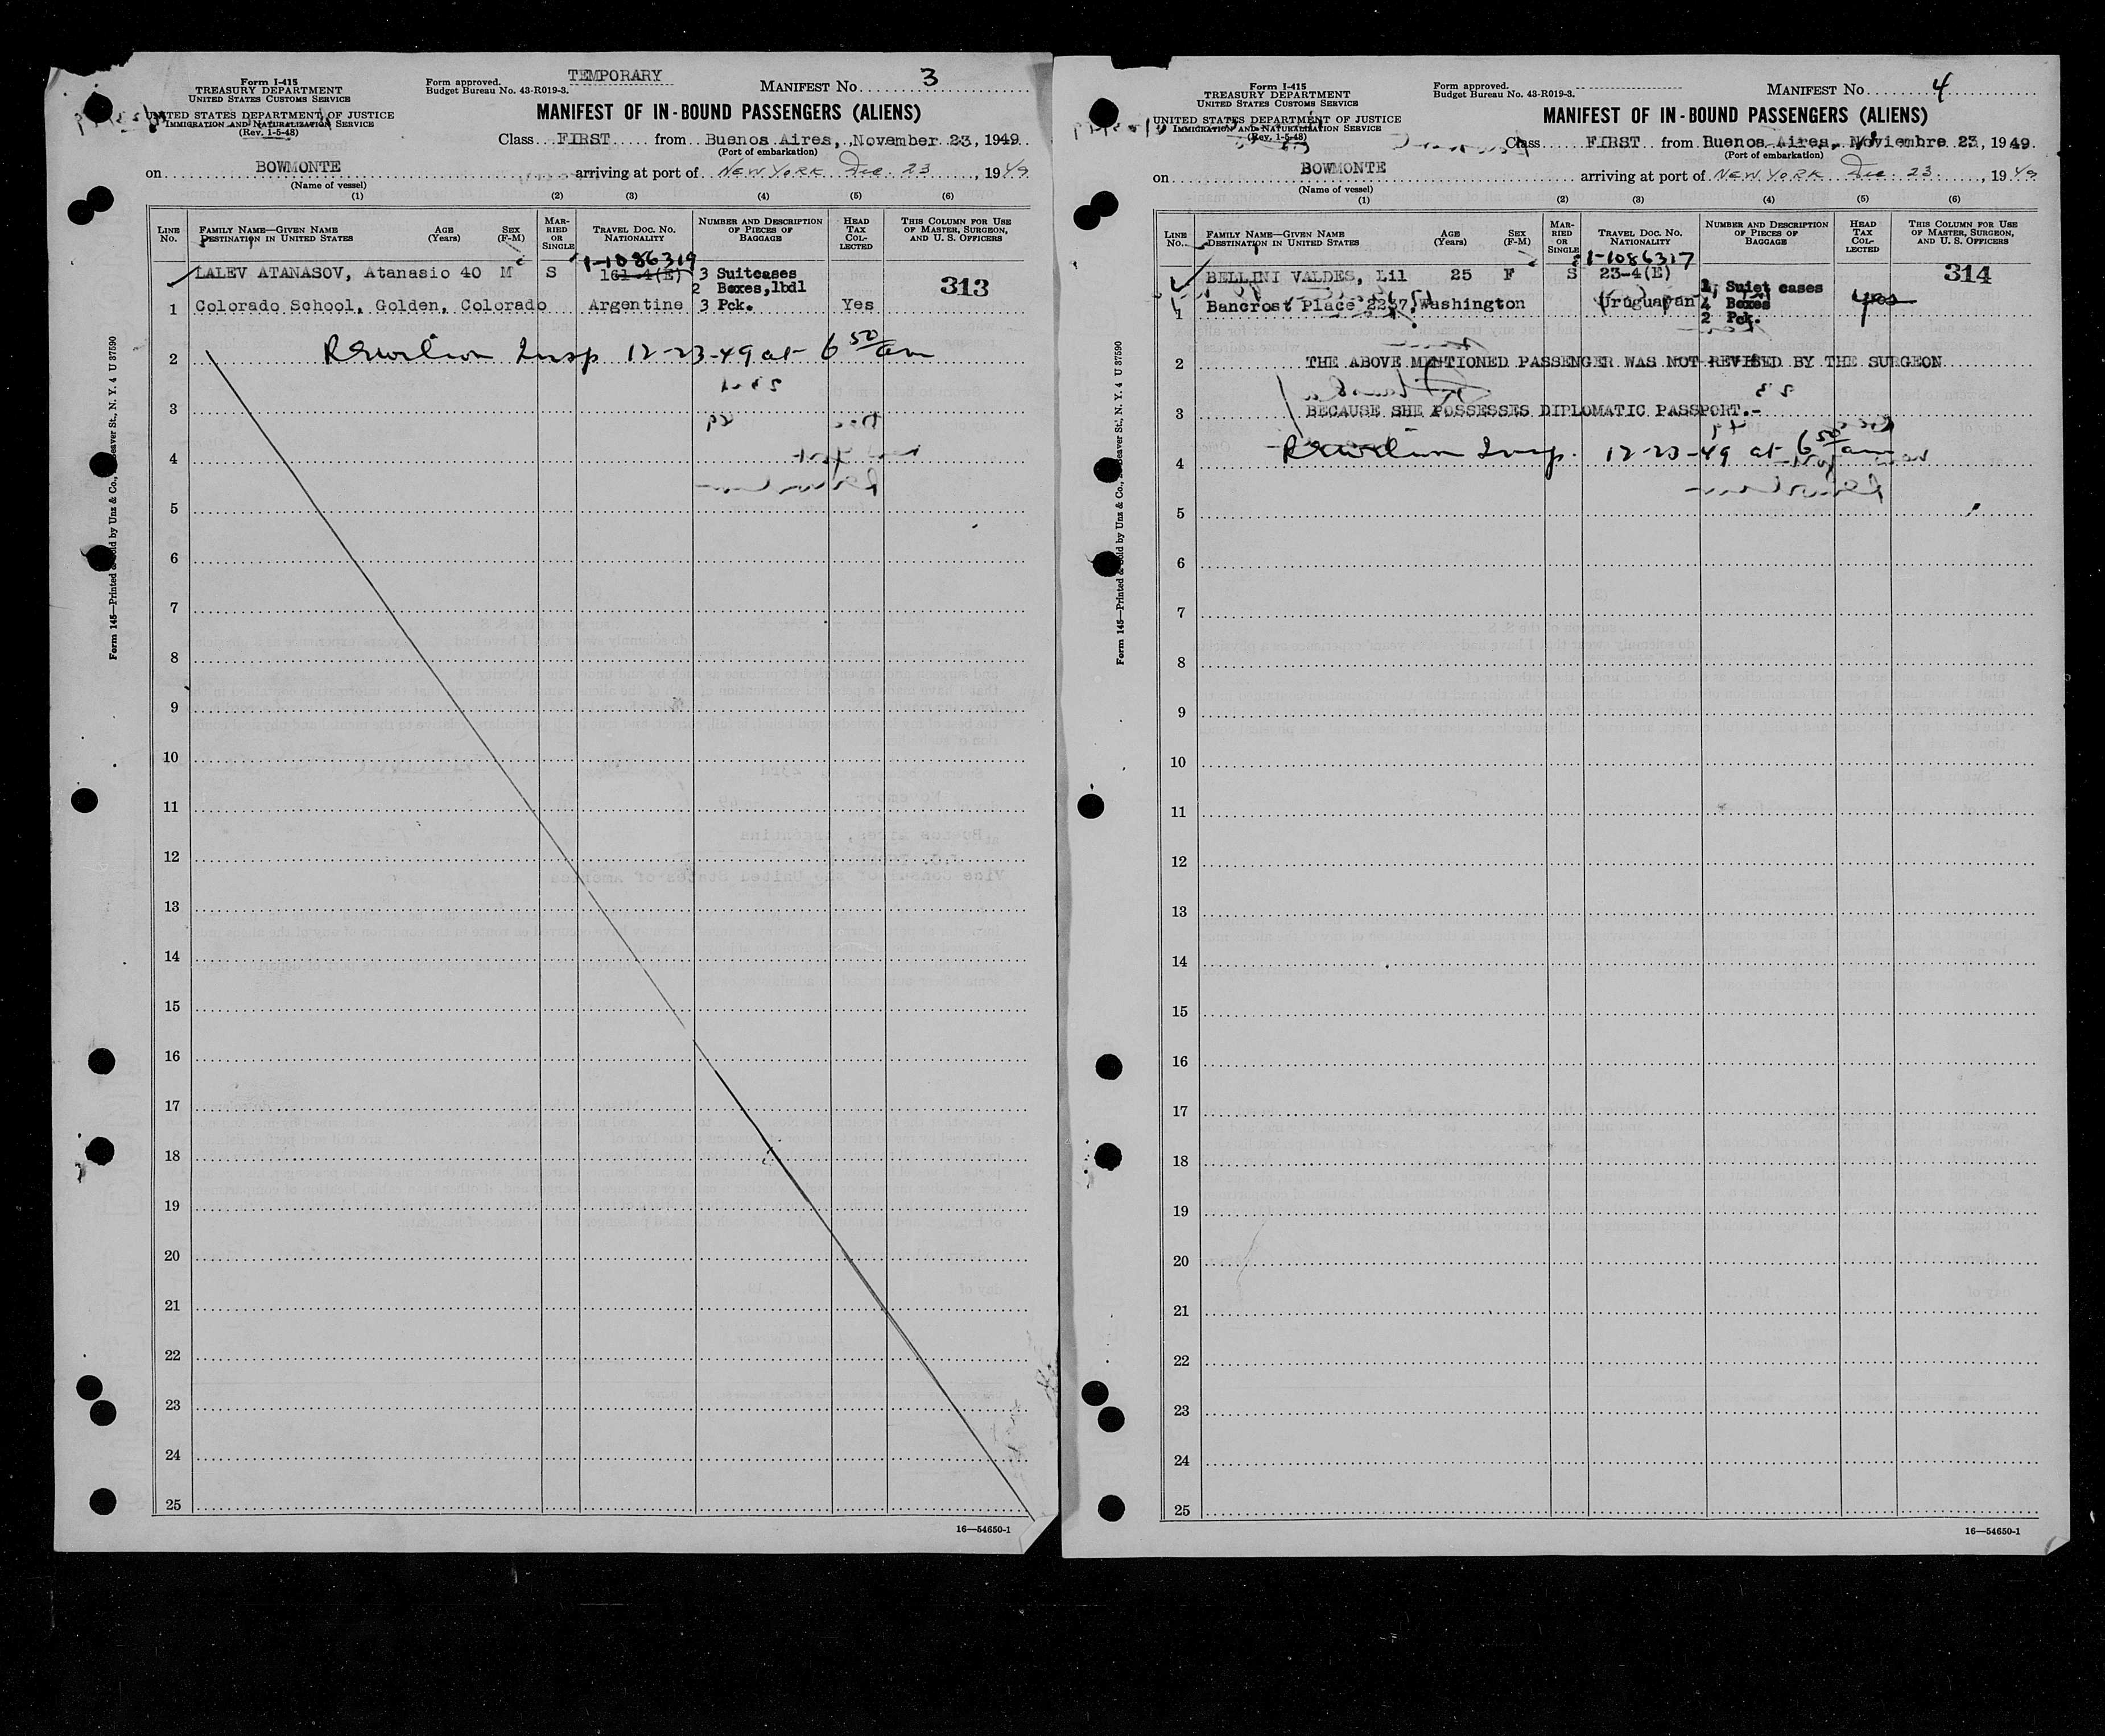 Form I-415
TREASURY DEPARTMENT
UNITED STATES CUSTOMS SERVICE
UNITED STATES DEPARTMENT OF JUSTICE
IMMIGRATION AND NATURALIZATION SERVICE
(Rev. 1-5-48)
Form approved.
Budget Bureau No. 43-R019-3.
TEMPORARY
MANIFEST NO. 3
MANIFEST OF IN-BOUND PASSENGERS (ALIENS)
Class FIRST from Buenos Aires, November 23, 1949
(Port of embarkation)
on BOWMONTE arriving at port of NEW YORK Dec. 23, 1949
(Name of vessel)
(1) (2) (3) (4) (5) (6)
LINE NO. FAMILY NAME—GIVEN NAME DESTINATION IN UNITED STATES AGE (Years) SEX (F-M) MARRIED OR SINGLE TRAVEL DOC. NO. NATIONALITY NUMBER AND DESCRIPTION OF PIECES OF BAGGAGE HEAD TAX COLLECTED THIS COLUMN FOR USE OF MASTER, SURGEON, AND U. S. OFFICERS
1-1086319
LALEV ATANASOV, Atanasio 40 M S 161-4(E) 3 Suitcases 313
2 Boxes,1bdl
1 Colorado School, Golden, Colorado Argentine 3 Pck. Yes
2 Insp 12-23-49 at 6 50/am
3
4
5
6
7
8
9
10
11
12
13
14
15
16
17
18
19
20
21
22
23
24
25
16—54650-1
Form 145—Printed & Sold by Unz & Co., Beaver St., N. Y. 4 U 37590
Form I-415
TREASURY DEPARTMENT
UNITED STATES CUSTOMS SERVICE
UNITED STATES DEPARTMENT OF JUSTICE
IMMIGRATION AND NATURALIZATION SERVICE
(Rev. 1-5-48)
Form approved.
Budget Bureau No. 43-R019-3.
MANIFEST NO. 4
MANIFEST OF IN-BOUND PASSENGERS (ALIENS)
Class FIRST from Buenos Aires, Noviembre 23, 1949.
(Port of embarkation)
on BOWMONTE arriving at port of NEW YORK Dec. 23, 1949
(Name of vessel)
(1) (2) (3) (4) (5) (6)
LINE NO. FAMILY NAME—GIVEN NAME DESTINATION IN UNITED STATES AGE (Years) SEX (F-M) MARRIED OR SINGLE TRAVEL DOC. NO. NATIONALITY NUMBER AND DESCRIPTION OF PIECES OF BAGGAGE HEAD TAX COLLECTED THIS COLUMN FOR USE OF MASTER, SURGEON, AND U. S. OFFICERS
1-1086317
BELLINI VALDES, Lil 25 F S 23-4(E) 314
Suiet cases
1 Bancrost Place 2237, Washington Uruguayan 4 Boxes yes
2 Pck.
2 THE ABOVE MENTIONED PASSENGER WAS NOT REVISED BY THE SURGEON
3 BECAUSE SHE POSSESSES DIPLOMATIC PASSPORT.-
4 Insp. 12-23-49 at 6 50/am
5
6
7
8
9
10
11
12
13
14
15
16
17
18
19
20
21
22
23
24
25
16—54650-1
Form 145—Printed & Sold by Unz & Co., Beaver St., N. Y. 4 U 37590